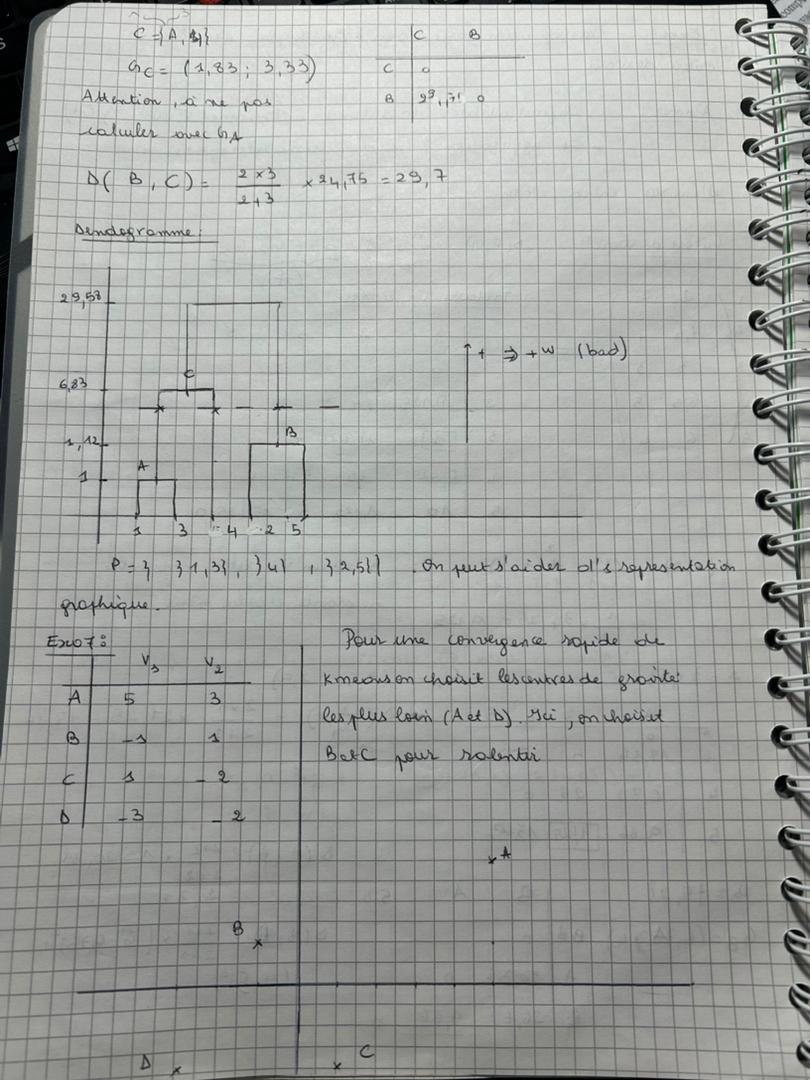 C = {A, 4}
G_C = (1,83 ; 3,33)
C B
C 0
B 29,58 0
Attention, à ne pas
calculer avec G_A
D( B , C) = 2 x 3 / 2+3 x 24,75 = 29,7
Dendogramme :
29,58
6,83
1,12
1
C
A
B
1 3 4 2 5
+ ⇒ + W (bad)
P = { {1,3}, {4} , {2,5}} . On peut s'aider d's représentation
graphique.
Exo 7 :
V1 V2
A 5 3
B -1 1
C 1 -2
D -3 -2
Pour une convergence rapide de
kmeans on choisit les centres de gravité
les plus loin (A et D). Ici, on choisit
B et C pour ralentir
A
B
D
C